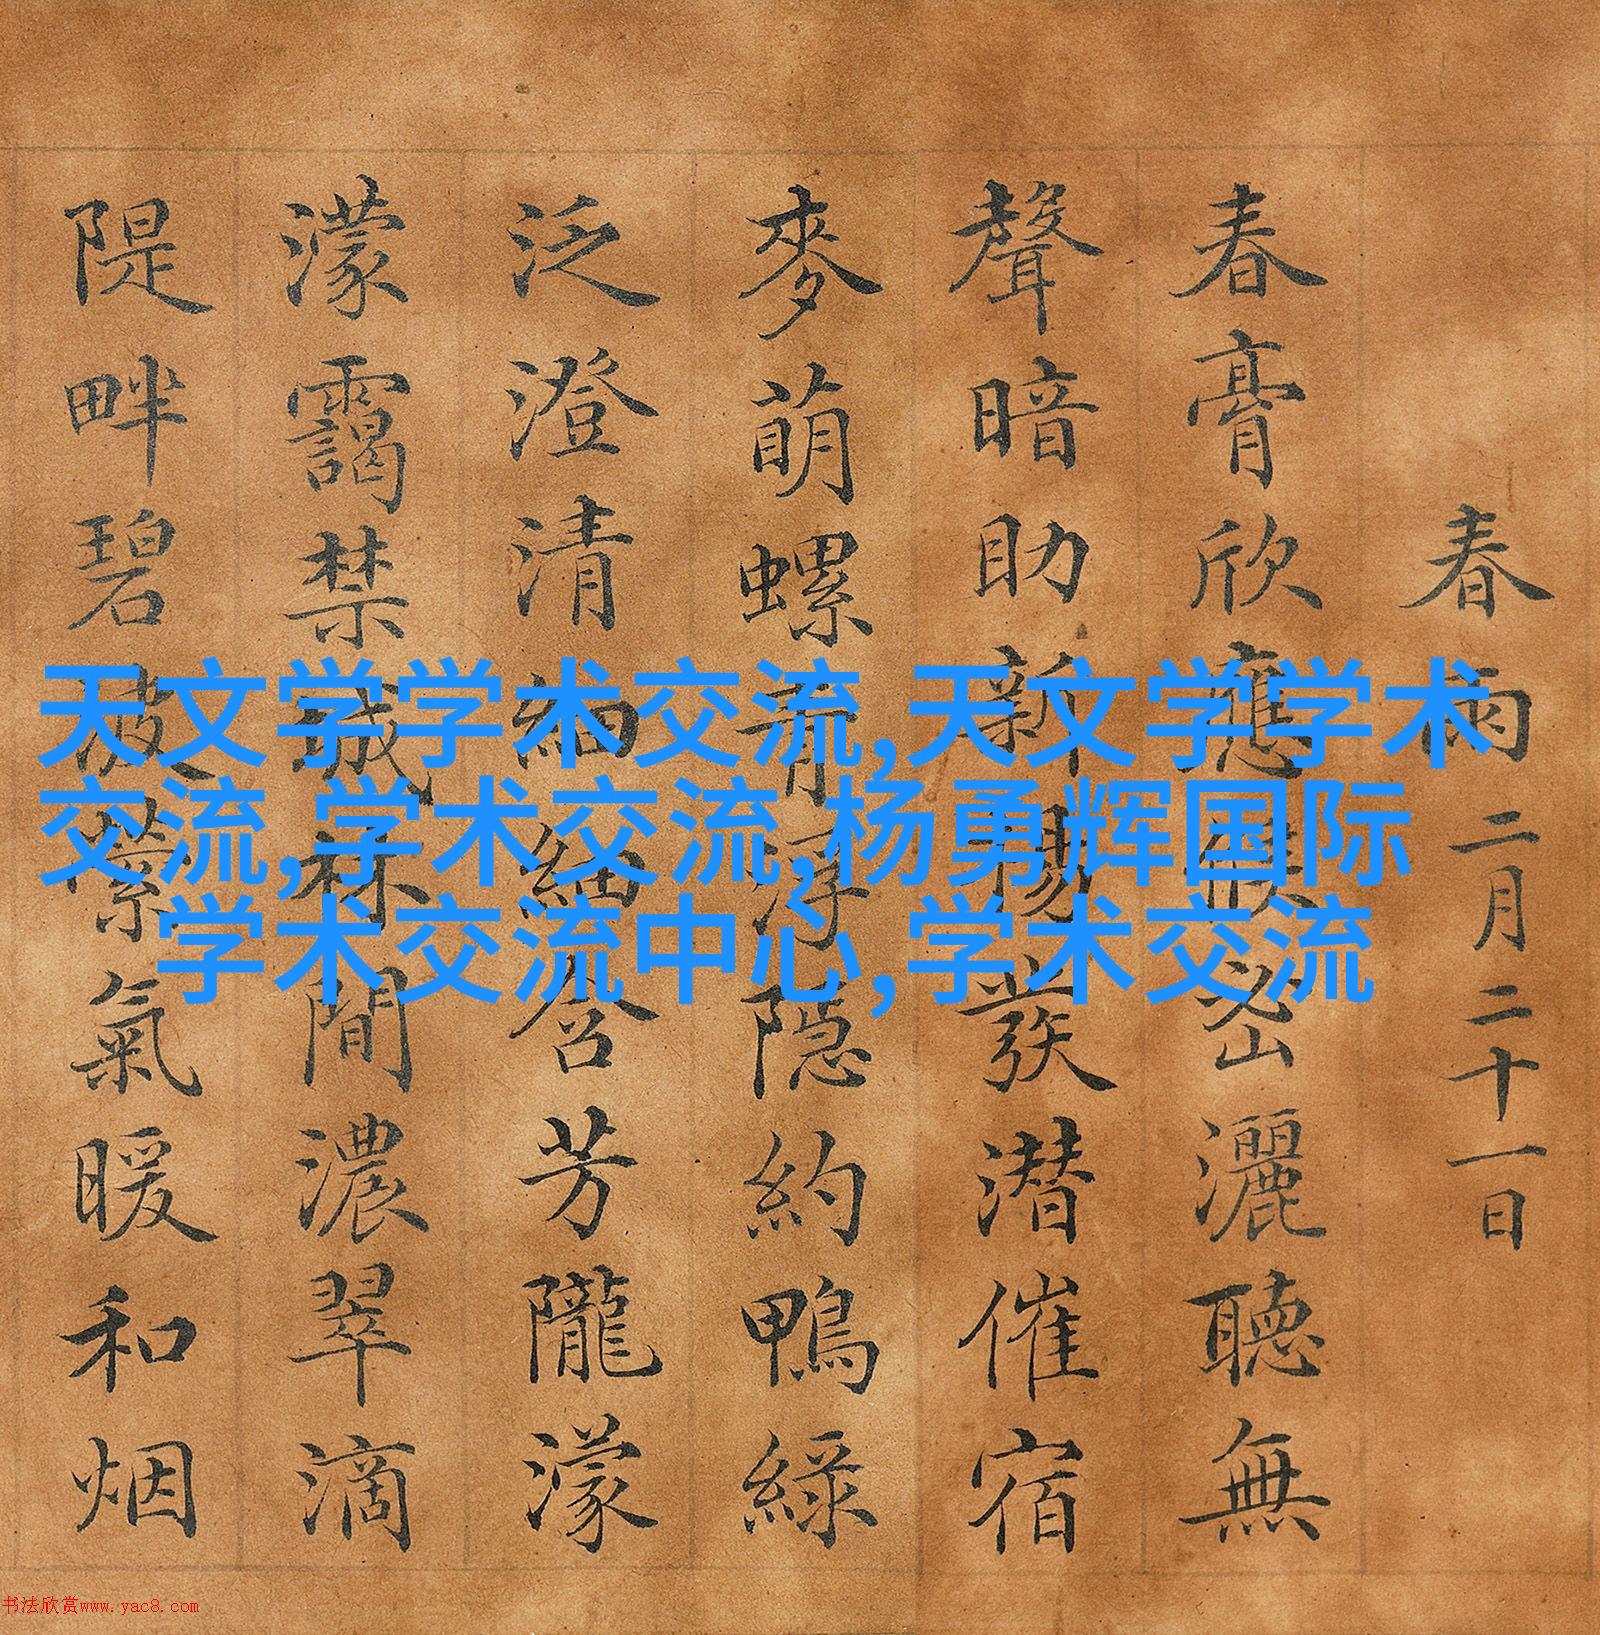 春雨 二月二十一日
春膏欣應候密灑聽無
聲暗助新陽發潜催宿
麥萌螺青浮隠約鴨綠
泛澄清細細含芳隴濛
濛靄禁城林間濃翠滴
隄畔碧波縈氣暖和烟
天文学学术交流,天文学学术
交流,学术交流,杨勇辉国际
学术交流中心,学术交流
书法欣赏www.yac8.com